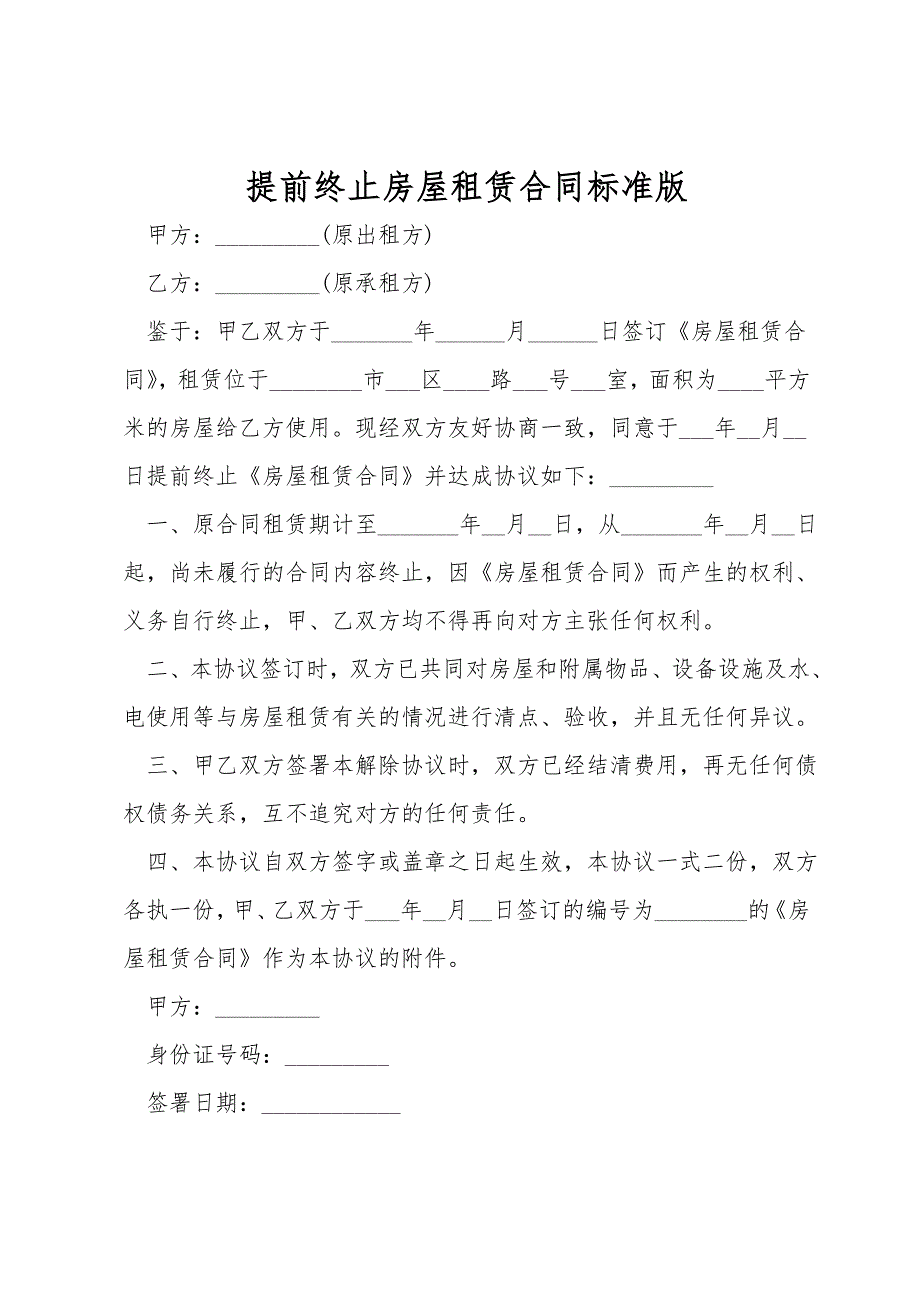 提前终止房屋租赁合同标准版
甲方：_________(原出租方)
乙方：_________(原承租方)
鉴于：甲乙双方于_______年______月______日签订《房屋租赁合
同》，租赁位于________市___区____路___号___室，面积为____平方
米的房屋给乙方使用。现经双方友好协商一致，同意于___年__月__
日提前终止《房屋租赁合同》并达成协议如下：_________
一、原合同租赁期计至_______年__月__日，从_______年__月__日
起，尚未履行的合同内容终止，因《房屋租赁合同》而产生的权利、
义务自行终止，甲、乙双方均不得再向对方主张任何权利。
二、本协议签订时，双方已共同对房屋和附属物品、设备设施及水、
电使用等与房屋租赁有关的情况进行清点、验收，并且无任何异议。
三、甲乙双方签署本解除协议时，双方已经结清费用，再无任何债
权债务关系，互不追究对方的任何责任。
四、本协议自双方签字或盖章之日起生效，本协议一式二份，双方
各执一份，甲、乙双方于___年__月__日签订的编号为________的《房
屋租赁合同》作为本协议的附件。
甲方：_________
身份证号码：_________
签署日期：____________